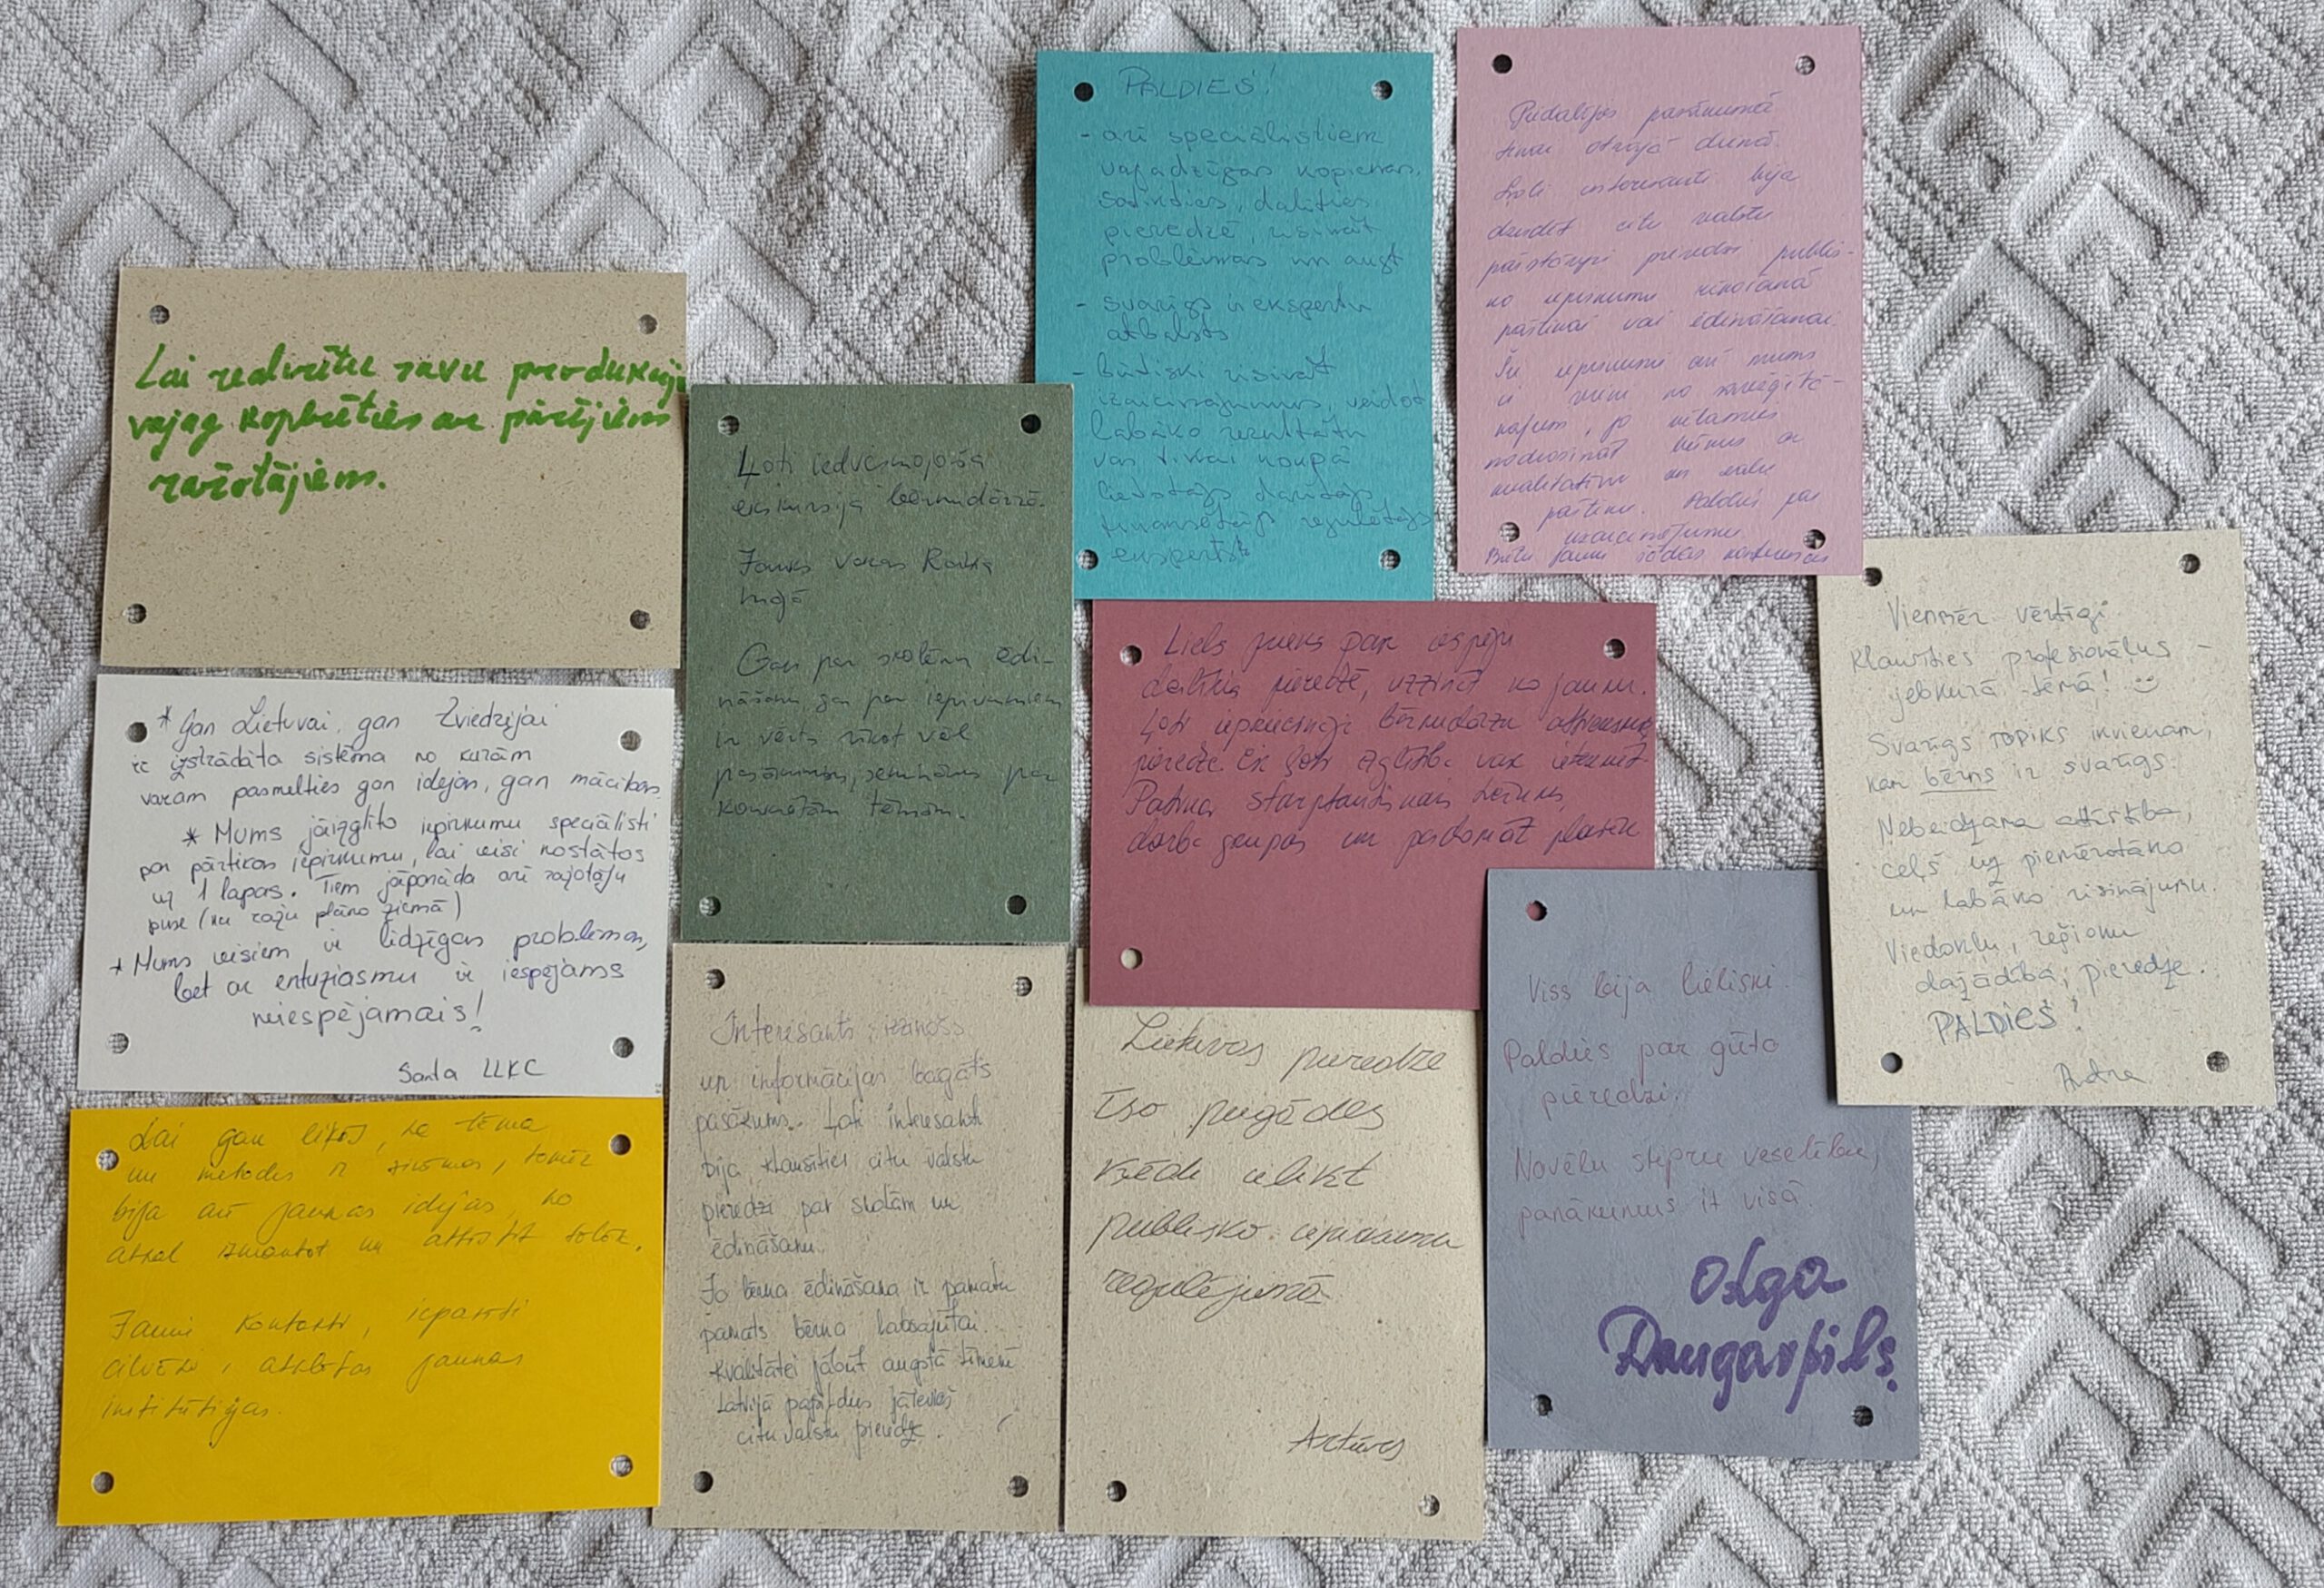 Lai realizētu savu produkciju
vajag kopbrēties ar pārējiem
ražotājiem.
* Gan Lietuvai, gan Zviedrijai
ir izstrādāta sistēma no kurām
varam pasmelties gan idejas, gan mācības.
* Mums jāizglīto iepirkumu speciālisti
par pārtikas iepirkumu, lai visi nostātos
uz 1 lapas. Tiem jāparāda arī ražotāju
puse (ka ražu plāno ziemā)
* Mums visiem ir līdzīgas problēmas,
bet ar entuziasmu ir iespējams
neiespējamais!
Santa LLKC
Lai gan likās, ka tēma
un metodes ir zināmas, tomēr
bija arī jaunas idejas, ko
atkal izmantot un attīstīt tālāk.
Jauni kontakti, iepazīti
cilvēki, atklātas jaunas
institūcijas.
Ļoti iedvesmojoša
ekskursija bērnudārzā.
Jauks vakars
Gan par skolēnu ēdi-
nāšanu, gan par iepirkumiem
ir vērts rīkot vēl
pasākumus, seminārus par
konkrētām tēmām.
Interesants, izzinošs
un informācijas bagāts
pasākums. Ļoti interesanti
bija klausīties citu valstu
pieredzi par skolām un
ēdināšanu.
Jo bērna ēdināšana ir pamatu
pamats bērna labsajūtai.
Kvalitātei jābūt augstā līmenī
Latvijā papildus jāievieš
citu valstu pieredze.
PALDIES!
- arī speciālistiem
vajadzīgas kopienas.
Satikties, dalīties
pieredzē, risināt
problēmas un augt
- svarīgs ir ekspertu
atbalsts
- būtiski risināt
izaicinājumus, veidot
labāko rezultātu
var tikai kopā
lietotājs darītājs
finansētājs regulētājs
eksperts
Piedalījos pasākumā
tikai otrajā dienā.
Ļoti interesanti bija
dzirdēt citu valstu
pārstāvju pieredzi publis-
ko iepirkumu rīkošanā
pārtikai vai ēdināšanai.
Šie iepirkumi arī mums
ir vieni no sarežģītā-
kajiem, jo vēlamies
nodrošināt bērnus ar
kvalitatīvu un
pārtiku. Paldies par
uzaicinājumu
Būtu jauki šādas konferences
Liels prieks par iespēju
dalīties pieredzē, uzzināt ko jaunu.
Ļoti iepriecināja bērnudārzu
pieredze.
Patika starptautiskais
darba grupas un
Lietuvas pieredze
īso piegādes
ķēdi ielikt
publisko iepirkumu
regulējumā.
Artūrs
Viss bija lieliski.
Paldies par gūto
pieredzi.
Novēlu stipru veselību,
panākumus it visā.
Olga
Daugavpils.
Vienmēr vērtīgi
klausīties profesionāļus -
jebkurā tēmā!
Svarīgs topiks ikvienam,
kam bērns ir svarīgs.
Nebeidzama attīstība,
ceļš uz piemērotāko
un labāko risinājumu.
Viedokļu, reģionu
dažādība, pieredze.
PALDIES!